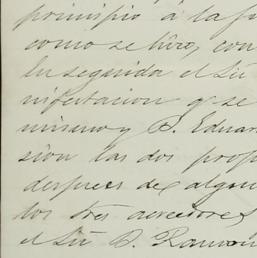 principio á la f
como se hizo, con
En seguida el Sr
nifestacion y se
mirano y D. Eduar
sion las dos prop
despues de algun
los tres acreedores
el Sr D. Ramon